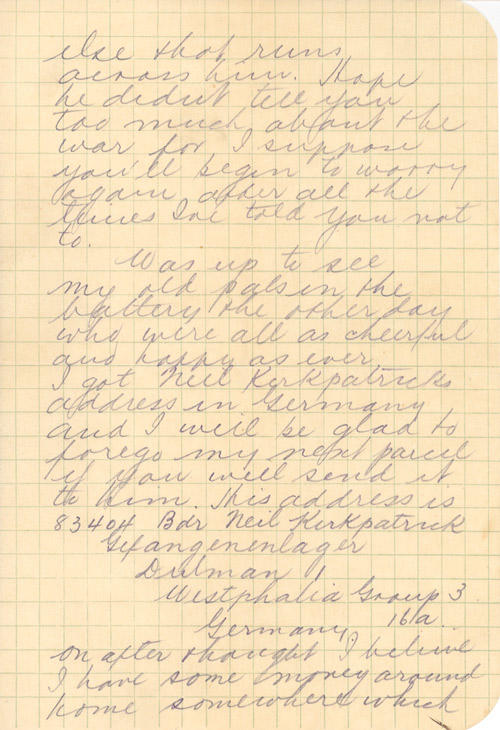 else that runs
across him. Hope
he didn't tell you
too much about the
war for I suppose
you'll begin to worry
again after all the
times I've told you not
to.
Was up to see
my old pals in the
battery the other day
who were all as cheerful
and happy as ever
I got Neil Kirkpatricks
address in Germany
and I will be glad to
forego my next parcel
if you will send it
to him. His address is
83404 Bdr Neil Kirkpatrick
Gefangenenlager
Dulman 1
Westphalia Group 3
Germany 16/a
on after thought I believe
I have some money around
home somewhere which